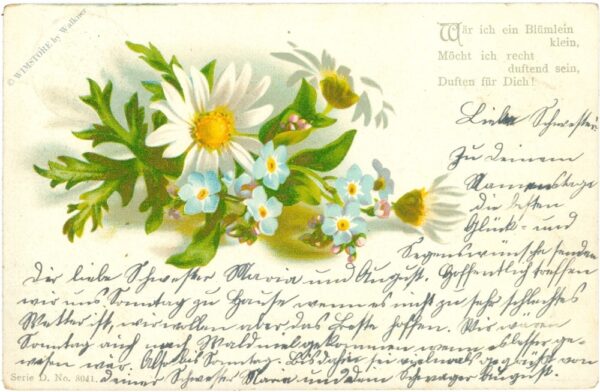 © WIMSTORE by Walkner
Wär ich ein Blümlein
klein,
Möcht ich recht
duftend sein,
Duften für Dich!
Liebe Schwester
Zu Deinem
Namenstage
die besten
Glück- und
Segenswünsche senden
Dir liebe Schwester Maria und August. Hoffentlich treffen
wir uns Sonntag zu Hause wenn es nicht zu sehr schlechtes
Wetter ist, wir wollen aber das Beste hoffen. Wir wären
Sonntag auch nach Wald gekommen wenn es besser ge-
wesen wär. Also bis Sonntag. Bis dahin sei vielmals gegrüßt von
deiner Schwester Mara und dein Schwager August.
Serie D. No. 8041.